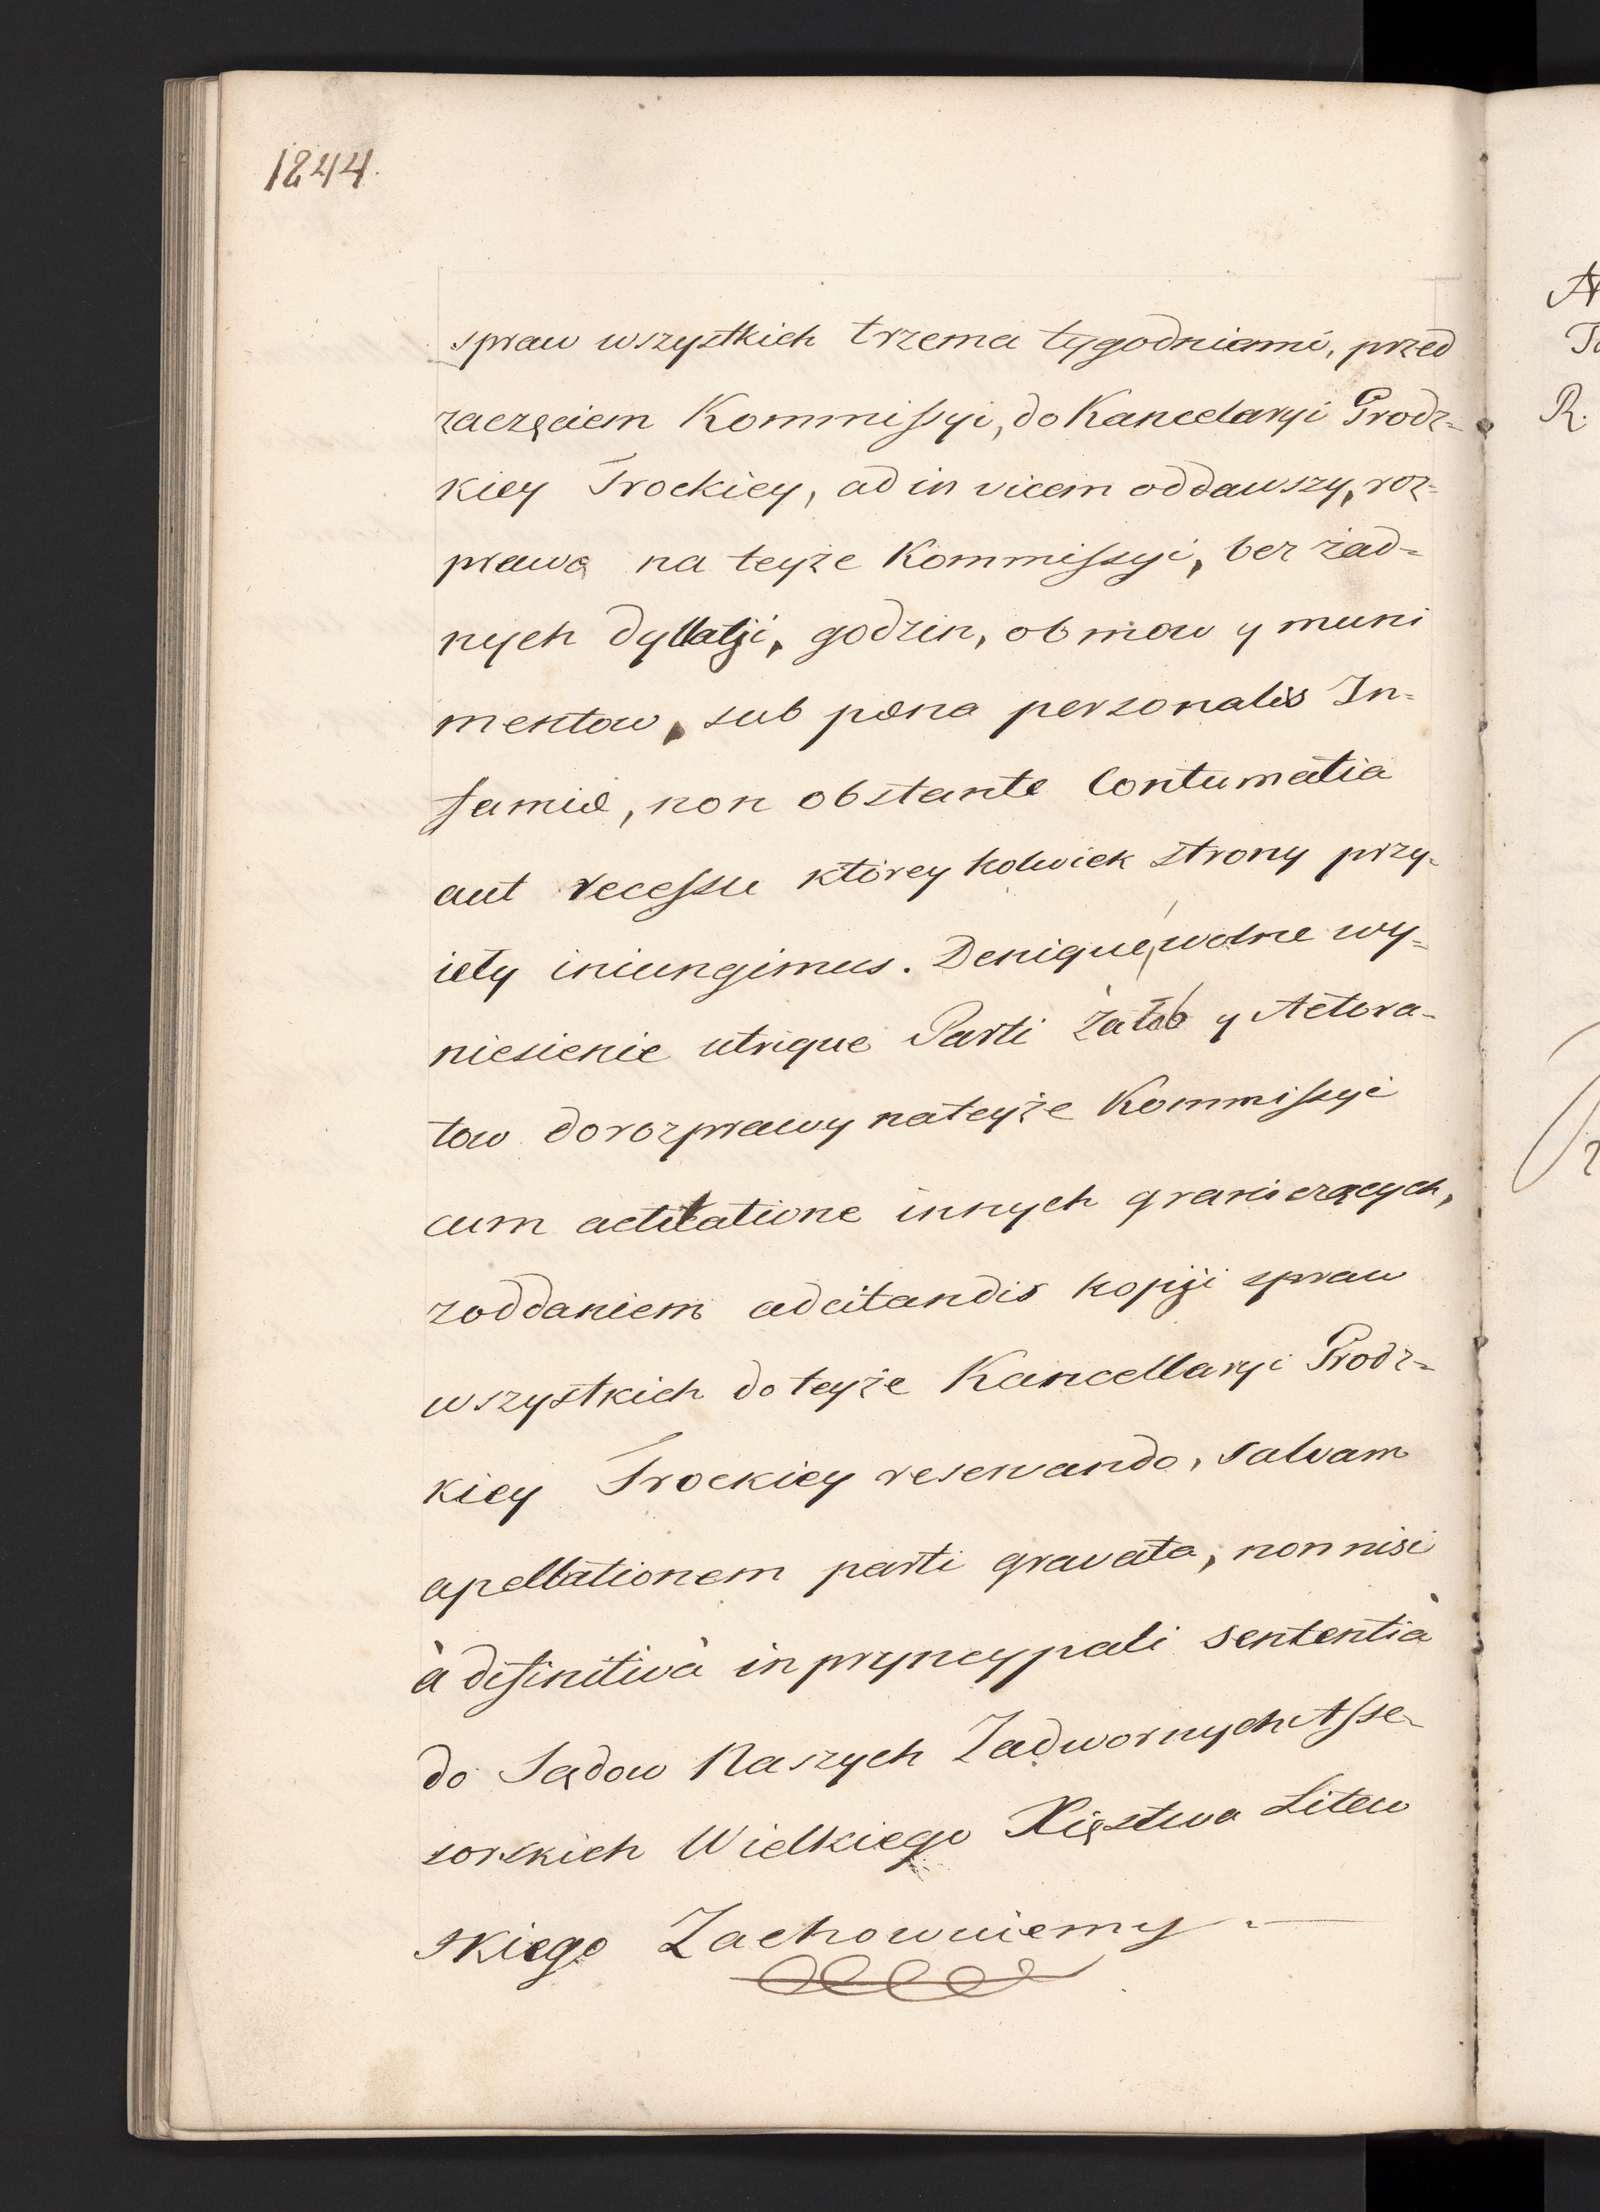 1244.
spraw wszystkich trzema tygodniami, przed
zaczęciem Kommissyi, do Kancelaryi Grodz=
kiey Trockiey, ad in vicem oddawszy, roz=
prawę na teyże Kommissyi, bez żad=
nych dyllatji, godzin, obmow y muni
mentow, sub pæna personalis In=
famiæ, non obstante Contumatia
aut recessu którey kolwiek strony przy=
ięty iniungimus. Denique, wolne wy=
niesienie utrique Parti Żałob y Aktora-
tow do rozprawy na teyże Kommissyi
cum actitatione innych graniczących,
z oddaniem adcitandis kopji spraw
wszystkich do teyże Kancellaryi Grodz=
kiey Trockiey reservando, salvam
apellationem parti gravata, non nisi
à difinitivà in pryncypali sententià
do Sądow Naszych Zadwornych Asse-
sorskich Wielkiego Xięstwa Litew
skiego Zachowuiemy.—
A
R.